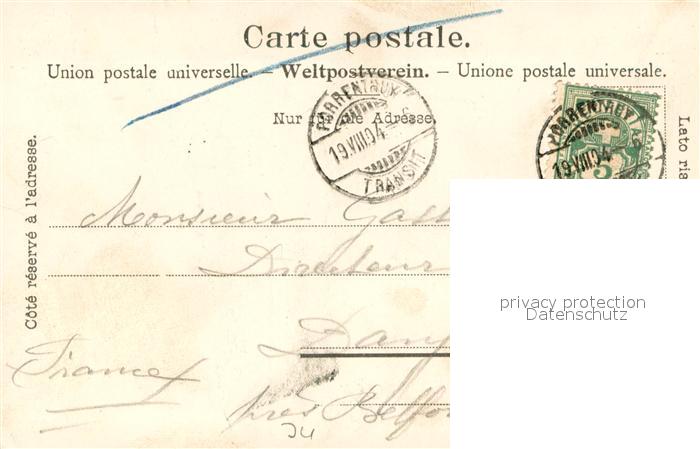 Carte postale.
Union postale universelle. — Weltpostverein. — Unione postale universale.
Nur für die Adresse.
PORRENTRUY
19.VIII.04-6
TRANSIT
PORRENTRUY
19.VIII.04-6
5
Côté réservé à l'adresse.
Lato ris
Monsieur
Directeur
près Belfo
France
34
privacy protection
Datenschutz